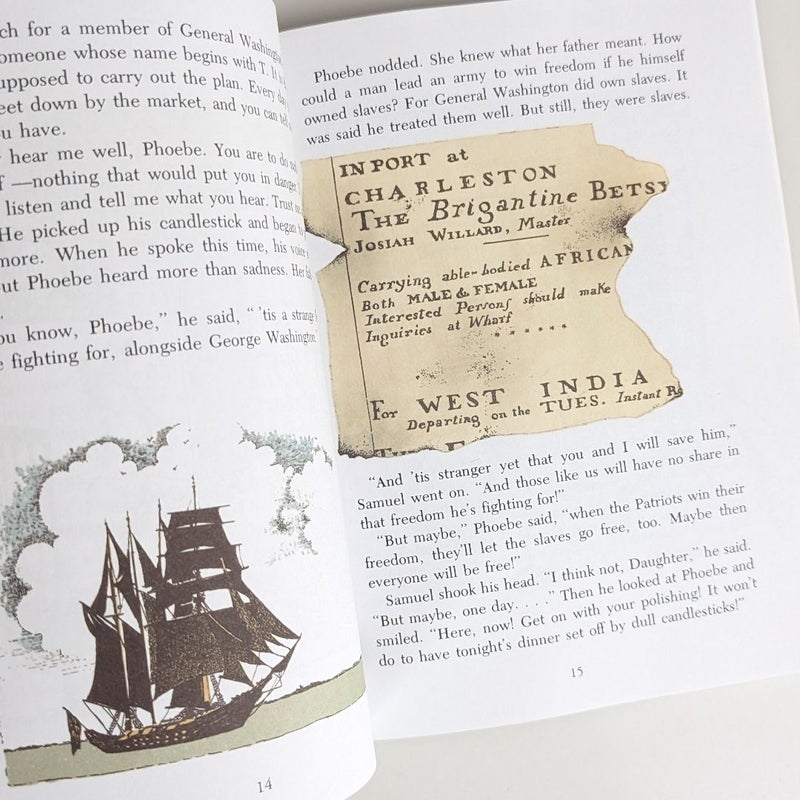 ch for a member of General Washing
omeone whose name begins with T. It
upposed to carry out the plan. Every
eet down by the market, and you can
u have.
hear me well, Phoebe. You are to do
f —nothing that would put you in danger
listen and tell me what you hear. Trust
He picked up his candlestick and began
more. When he spoke this time, his voice
ut Phoebe heard more than sadness. Her
.
ou know, Phoebe," he said, " 'tis a strange
e fighting for, alongside George Washington.
14
Phoebe nodded. She knew what her father meant. How
could a man lead an army to win freedom if he himself
owned slaves? For General Washington did own slaves. It
was said he treated them well. But still, they were slaves.
IN PORT at
CHARLESTON
THE Brigantine BETSY
JOSIAH WILLARD, Master
Carrying able-bodied AFRICAN
Both MALE & FEMALE
Interested Persons should make
Inquiries at Wharf
For WEST INDIA
Departing on the TUES. Instant
"And 'tis stranger yet that you and I will save him,"
Samuel went on. "And those like us will have no share in
that freedom he's fighting for!"
"But maybe," Phoebe said, "when the Patriots win their
freedom, they'll let the slaves go free, too. Maybe then
everyone will be free!"
Samuel shook his head. "I think not, Daughter," he said.
"But maybe, one day. . . ." Then he looked at Phoebe and
smiled. "Here, now! Get on with your polishing! It won't
do to have tonight's dinner set off by dull candlesticks!"
15